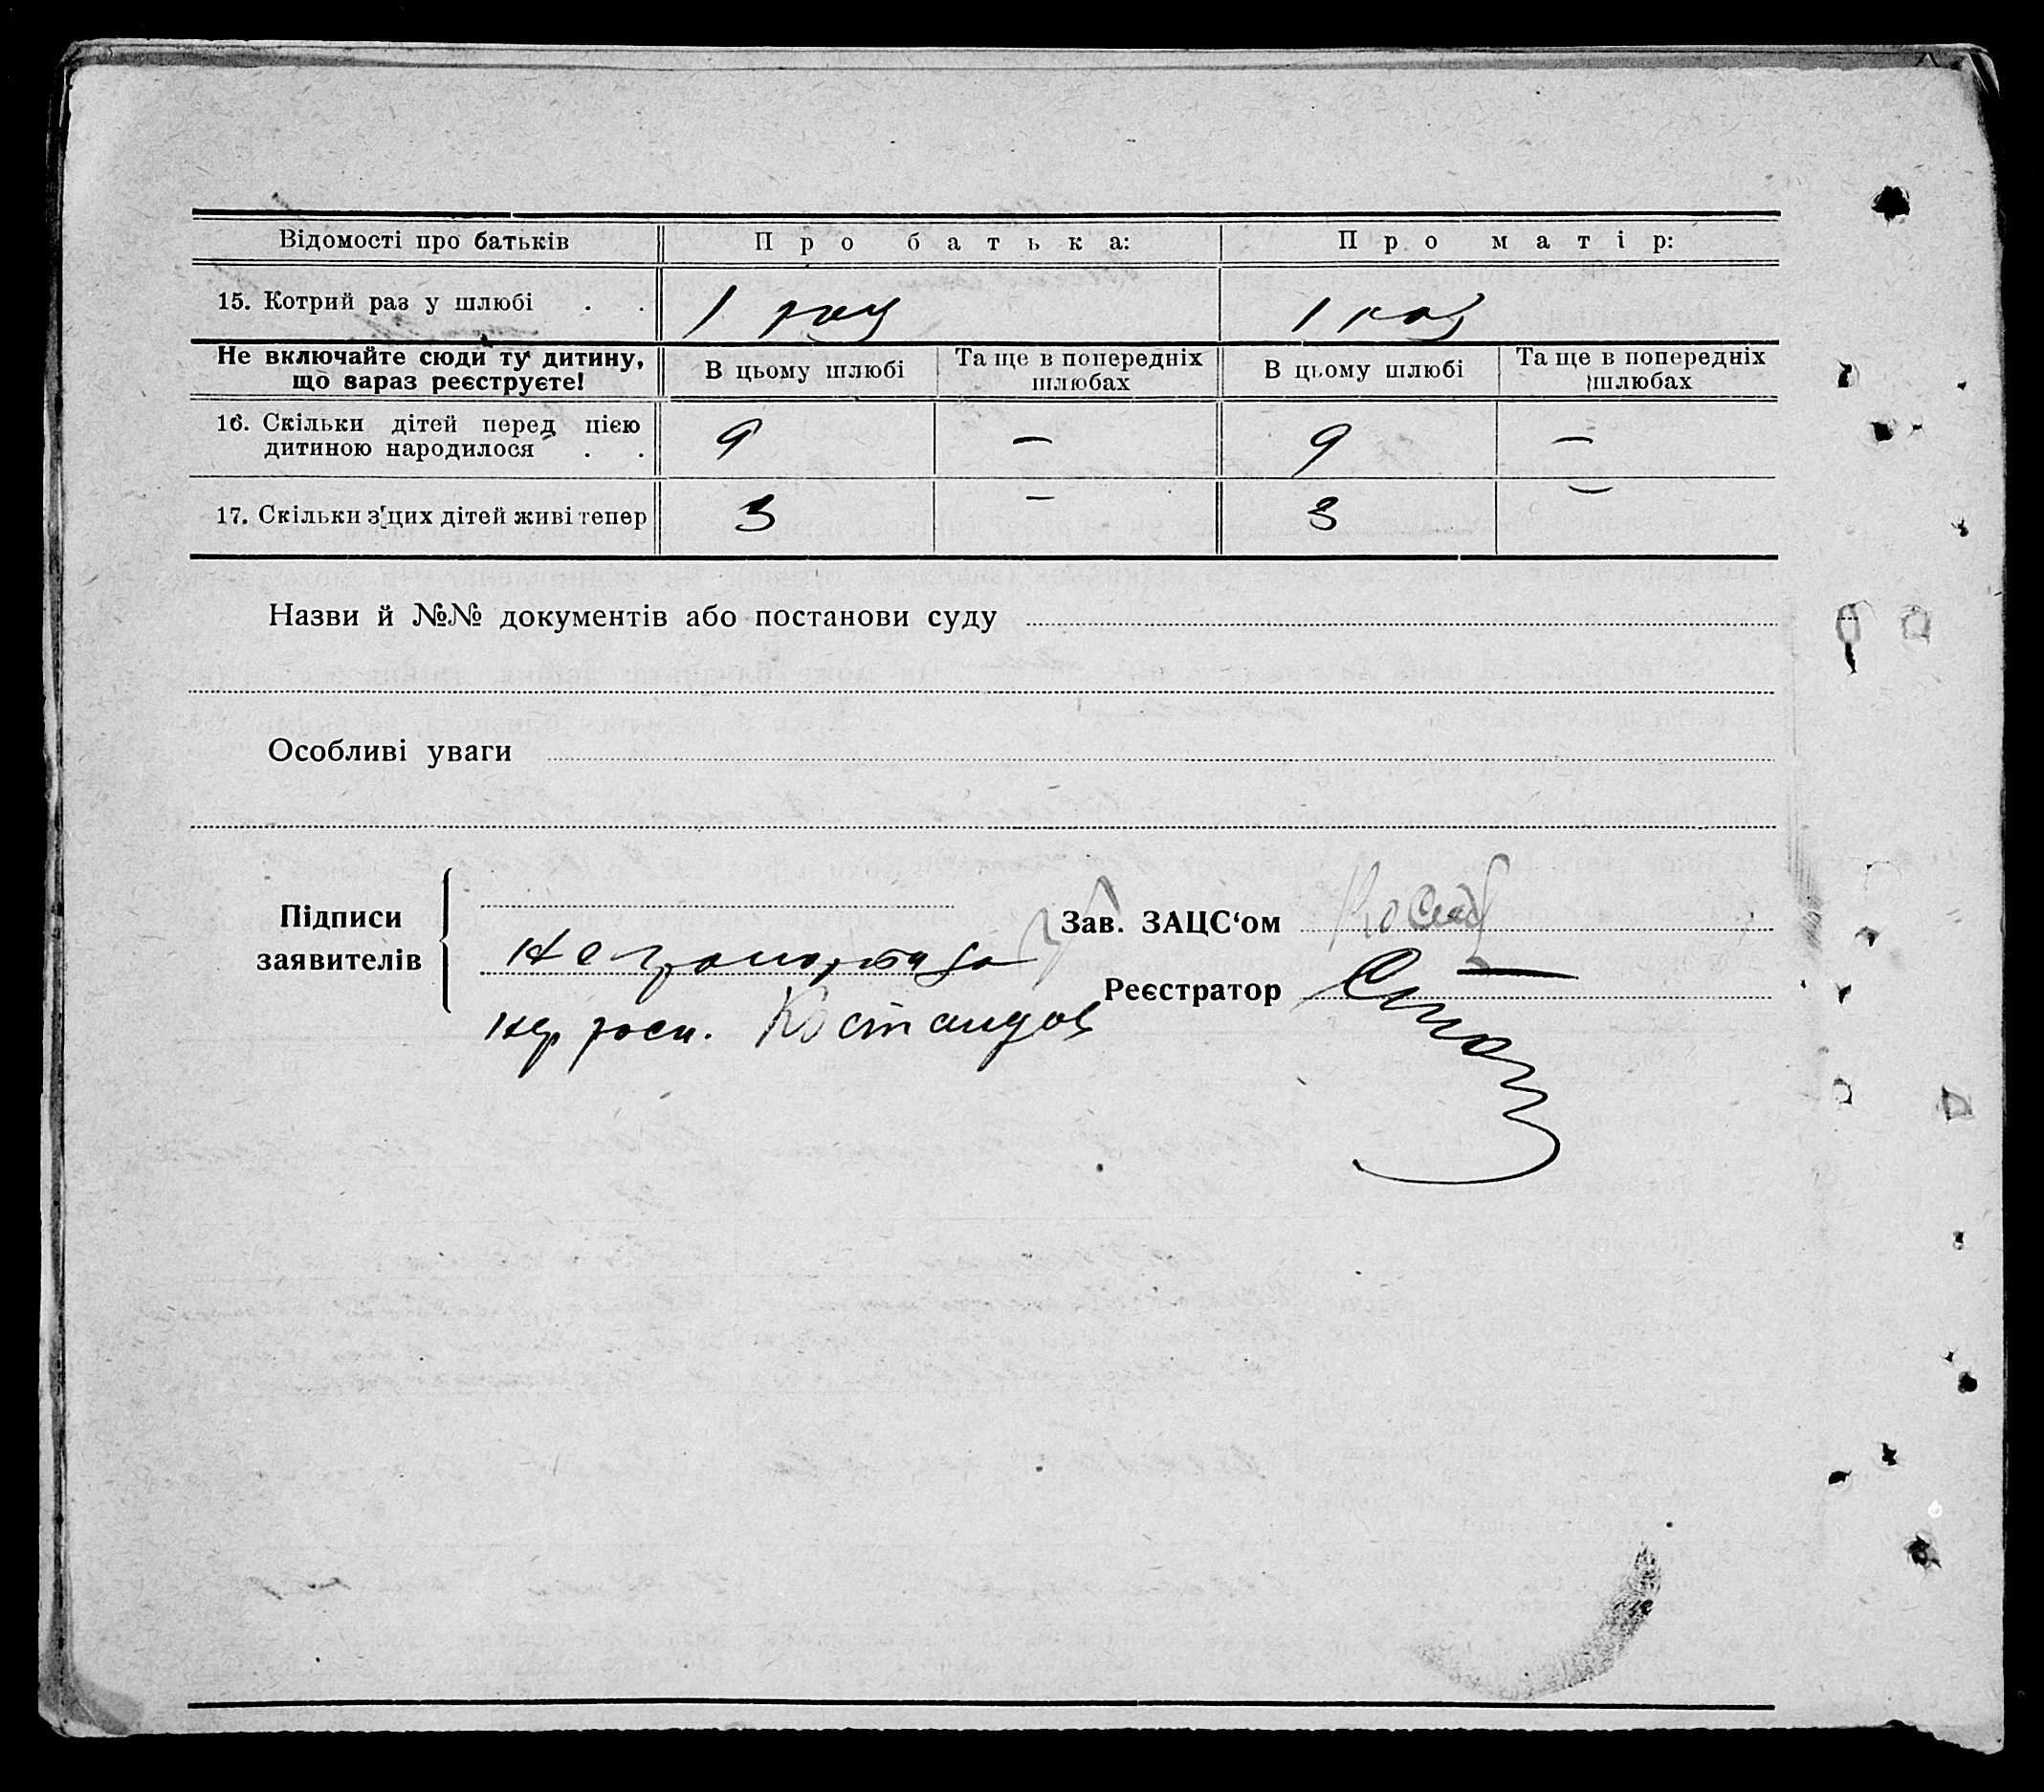 Відомості про батьків Про батька: Про матір:
15. Котрий раз у шлюбі . . 1 раз 1 раз
Не включайте сюди ту дитину, що зараз реєструєте!
В цьому шлюбі
Та ще в попередніх шлюбах
В цьому шлюбі
Та ще в попередніх шлюбах
16. Скільки дітей перед цією
дитиною народилося . . 9 — 9 —
17. Скільки з цих дітей живі тепер 3 — 3 —
Назви й №№ документів або постанови суду
Особливі уваги
Підписи
заявителів
неграмотна
Костандов
Зав. ЗАЦС‘ом
Реєстратор